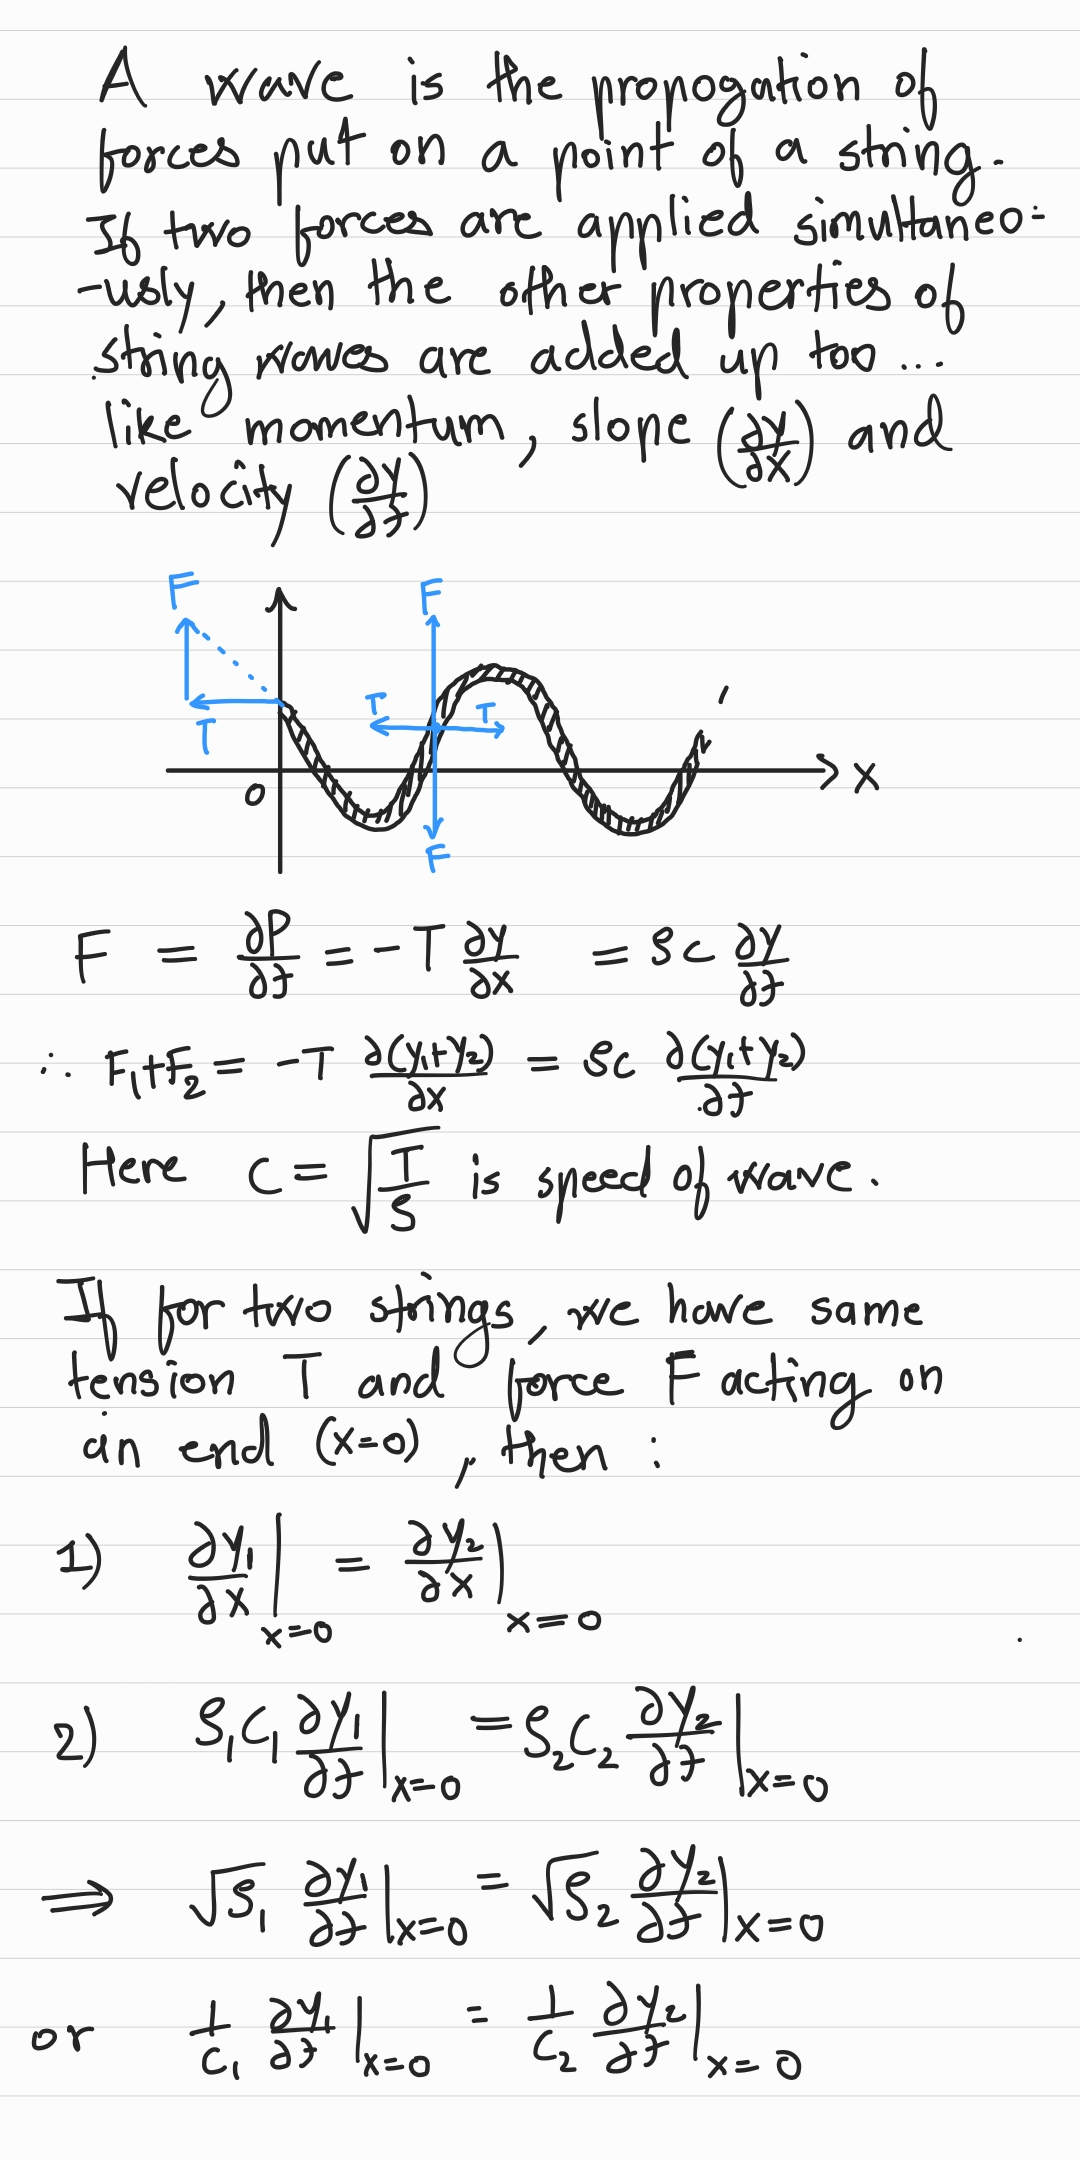 A wave is the propogation of
forces put on a point of a string.
If two forces are applied simultaneo-
-usly, then the other properties of
string waves are added up too ...
like momentum, slope (∂y/∂x) and
velocity (∂y/∂t)
F F
T T T
O x
F
F = ∂P/∂t = -T ∂y/∂x = ρc ∂y/∂t
∴ F₁+F₂ = -T ∂(y₁+y₂)/∂x = ρc ∂(y₁+y₂)/∂t
Here c = √(T/ρ) is speed of wave.
If for two strings, we have same
tension T and force F acting on
an end (x=0), then :
1) ∂y₁/∂x |x=0 = ∂y₂/∂x |x=0
2) ρ₁c₁ ∂y₁/∂t |x=0 = ρ₂c₂ ∂y₂/∂t |x=0
⟹ √ρ₁ ∂y₁/∂t |x=0 = √ρ₂ ∂y₂/∂t |x=0
or 1/c₁ ∂y₁/∂t |x=0 = 1/c₂ ∂y₂/∂t |x=0